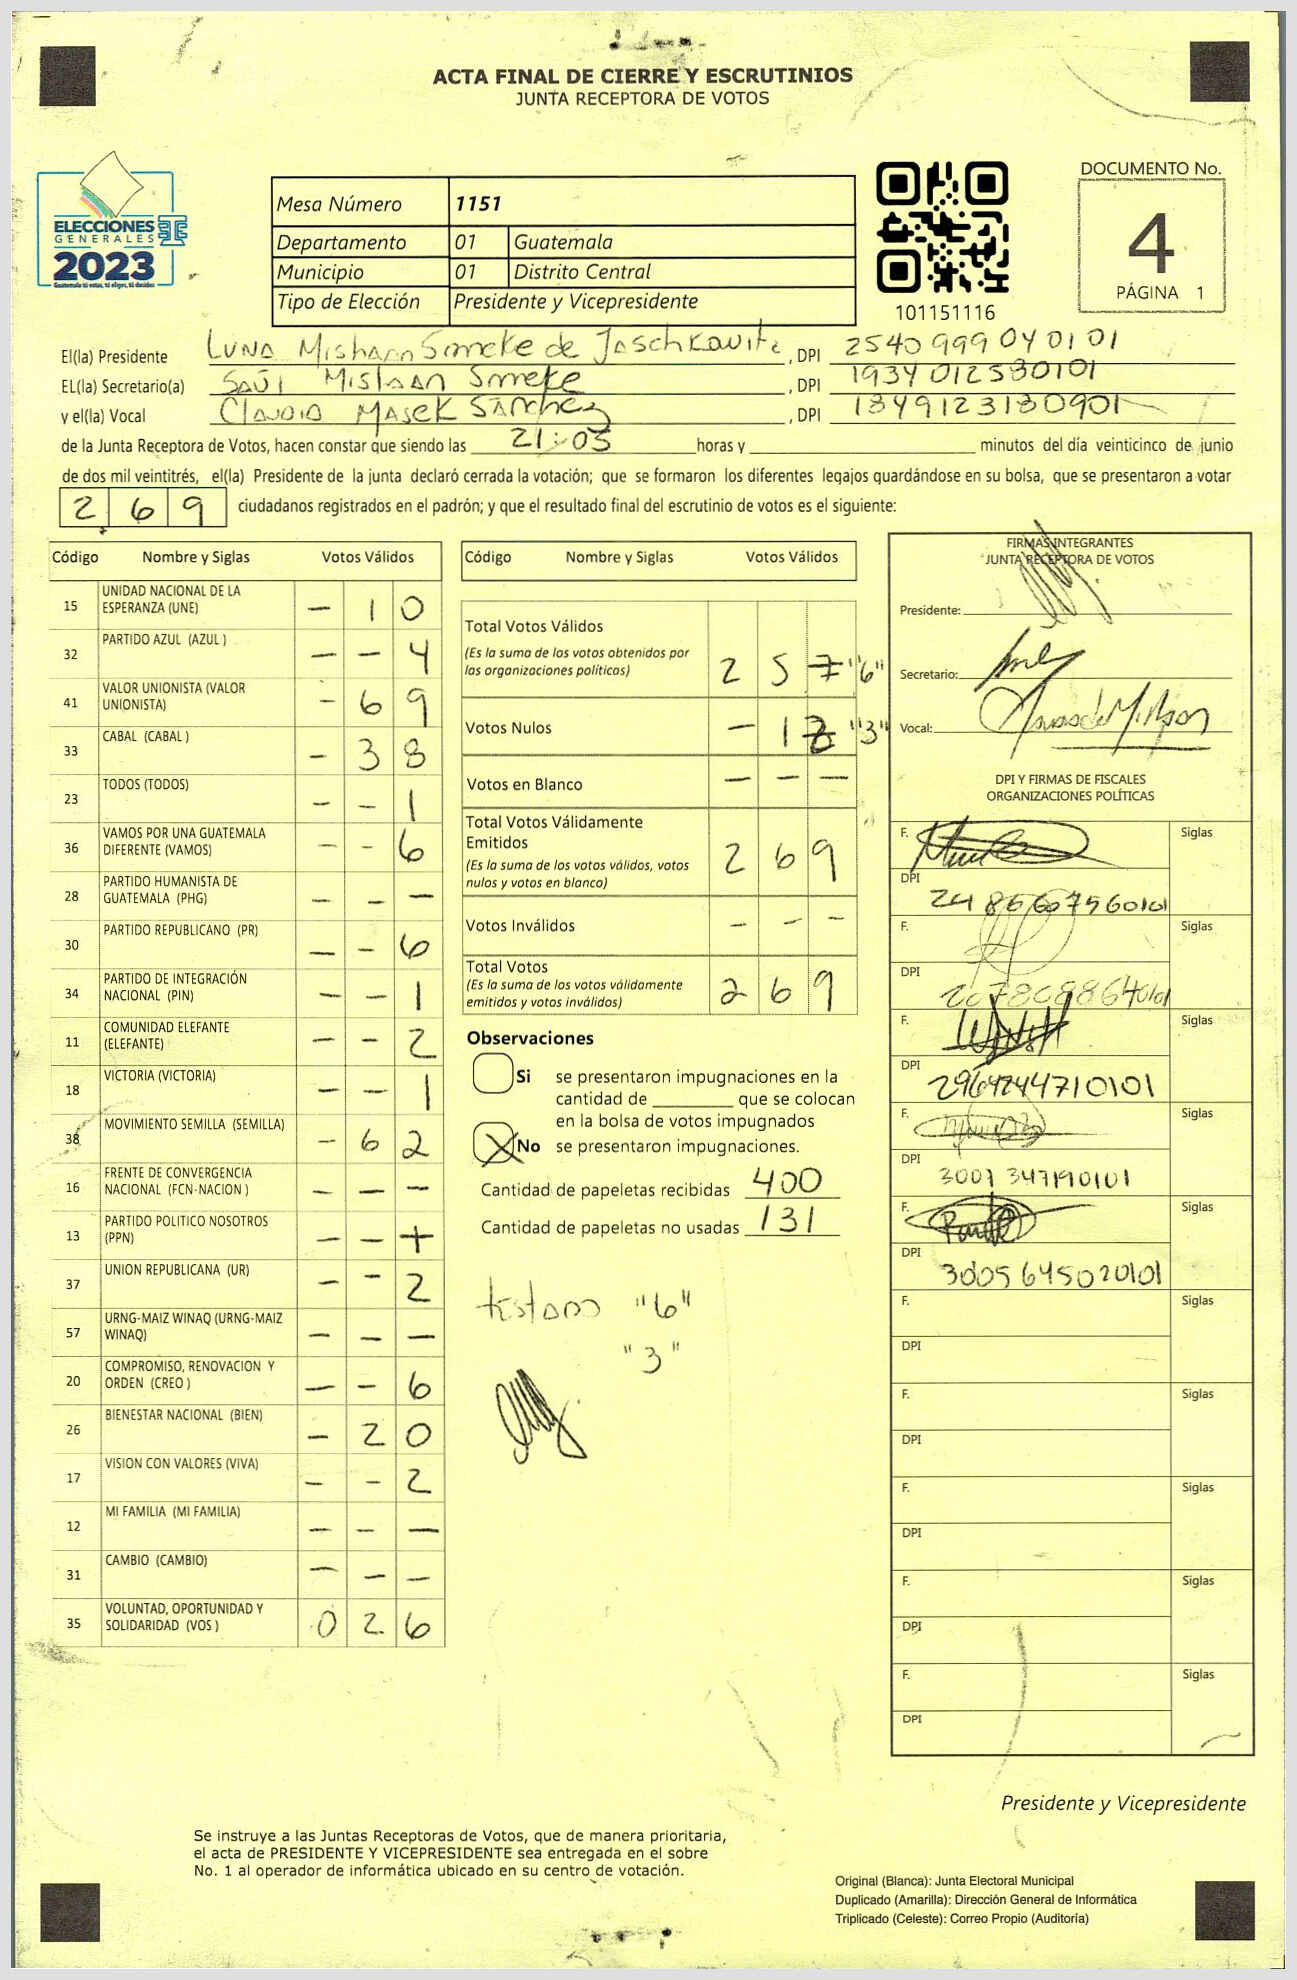 ACTA FINAL DE CIERRE Y ESCRUTINIOS
JUNTA RECEPTORA DE VOTOS
ELECCIONES
GENERALES
2023
Guatemala tú votas, tú eliges, tú decides
Mesa Número 1151
Departamento 01 Guatemala
Municipio 01 Distrito Central
Tipo de Elección Presidente y Vicepresidente
101151116
DOCUMENTO No.
4
PÁGINA 1
El(la) Presidente Luna Mishaan Smeke de Jaschkowitz, DPI 2540 999 04 0101
EL(la) Secretario(a) Saúl Mishaan Smeke, DPI 1934 01258 0101
y el(la) Vocal Claudia Masek Sánchez, DPI 1849123180901
de la Junta Receptora de Votos, hacen constar que siendo las 21:05 horas y minutos del día veinticinco de junio
de dos mil veintitrés, el(la) Presidente de la junta declaró cerrada la votación; que se formaron los diferentes legajos guardándose en su bolsa, que se presentaron a votar
2 6 9 ciudadanos registrados en el padrón; y que el resultado final del escrutinio de votos es el siguiente:
Código Nombre y Siglas Votos Válidos
15 UNIDAD NACIONAL DE LA ESPERANZA (UNE) - 1 0
32 PARTIDO AZUL (AZUL ) - - 4
41 VALOR UNIONISTA (VALOR UNIONISTA) - 6 9
33 CABAL (CABAL ) - 3 8
23 TODOS (TODOS) - - 1
36 VAMOS POR UNA GUATEMALA DIFERENTE (VAMOS) - - 6
28 PARTIDO HUMANISTA DE GUATEMALA (PHG) - - -
30 PARTIDO REPUBLICANO (PR) - - 6
34 PARTIDO DE INTEGRACIÓN NACIONAL (PIN) - - 1
11 COMUNIDAD ELEFANTE (ELEFANTE) - - 2
18 VICTORIA (VICTORIA) - - 1
38 MOVIMIENTO SEMILLA (SEMILLA) - 6 2
16 FRENTE DE CONVERGENCIA NACIONAL (FCN-NACION ) - - -
13 PARTIDO POLITICO NOSOTROS (PPN) - -
37 UNION REPUBLICANA (UR) - - 2
57 URNG-MAIZ WINAQ (URNG-MAIZ WINAQ) - - -
20 COMPROMISO, RENOVACION Y ORDEN (CREO ) - - 6
26 BIENESTAR NACIONAL (BIEN) - 2 0
17 VISION CON VALORES (VIVA) - - 2
12 MI FAMILIA (MI FAMILIA) - - -
31 CAMBIO (CAMBIO) - - -
35 VOLUNTAD, OPORTUNIDAD Y SOLIDARIDAD (VOS ) 0 2 6
Código Nombre y Siglas Votos Válidos
Total Votos Válidos
(Es la suma de los votos obtenidos por
las organizaciones políticas) 2 5 7 "6"
Votos Nulos - 1 2 "3"
Votos en Blanco - - -
Total Votos Válidamente
Emitidos
(Es la suma de los votos válidos, votos
nulos y votos en blanco) 2 6 9
Votos Inválidos - - -
Total Votos
(Es la suma de los votos válidamente
emitidos y votos inválidos) 2 6 9
Observaciones
Si se presentaron impugnaciones en la
cantidad de que se colocan
en la bolsa de votos impugnados
X No se presentaron impugnaciones.
Cantidad de papeletas recibidas 400
Cantidad de papeletas no usadas 131
testado "6"
"3"
FIRMAS INTEGRANTES
JUNTA RECEPTORA DE VOTOS
Presidente:
Secretario:
Vocal:
DPI Y FIRMAS DE FISCALES
ORGANIZACIONES POLÍTICAS
F. Siglas
DPI 2485607560101
F. Siglas
DPI 2078088640101
F. Siglas
DPI 2964244710101
F. Siglas
DPI 3001 347190101
F. Siglas
DPI 3005 645020101
F. Siglas
DPI
F. Siglas
DPI
F. Siglas
DPI
F. Siglas
DPI
F. Siglas
DPI
Presidente y Vicepresidente
Se instruye a las Juntas Receptoras de Votos, que de manera prioritaria,
el acta de PRESIDENTE Y VICEPRESIDENTE sea entregada en el sobre
No. 1 al operador de informática ubicado en su centro de votación.
Original (Blanca): Junta Electoral Municipal
Duplicado (Amarilla): Dirección General de Informática
Triplicado (Celeste): Correo Propio (Auditoría)